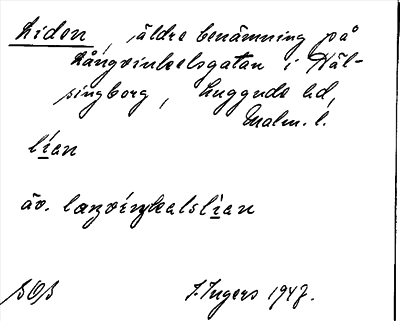 Liden, äldre benämning på
Långvinkelsgatan i Häl-
singborg, Luggude hd,
Malm. l.
lían
äv. laŋvíŋkalslían
SOS I. Ingers 1947.